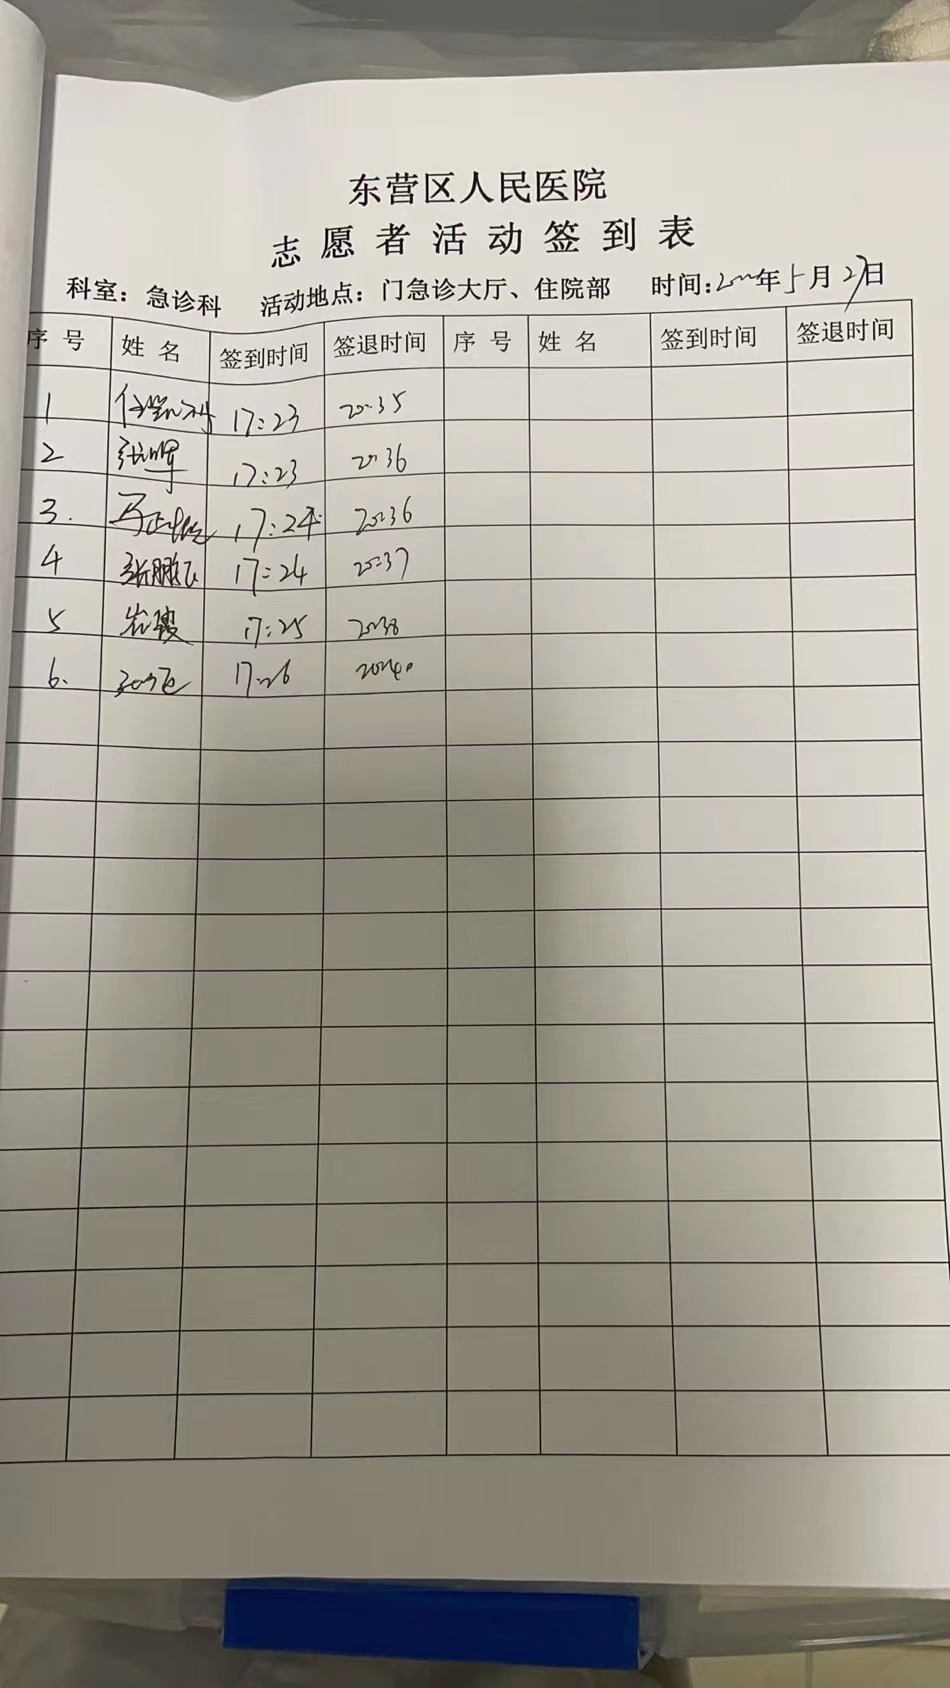 东营区人民医院
志愿者活动签到表
科室：急诊科 活动地点：门急诊大厅、住院部 时间: 年5月27日
序号 姓名 签到时间 签退时间 序号 姓名 签到时间 签退时间
1 17:23 20:35
2 张晖 17:23 20:36
3. 17:24 20:36
4 张鹏飞 17:24 20:37
5 岩骏 17:25 20:38
6. 17:26 20:40